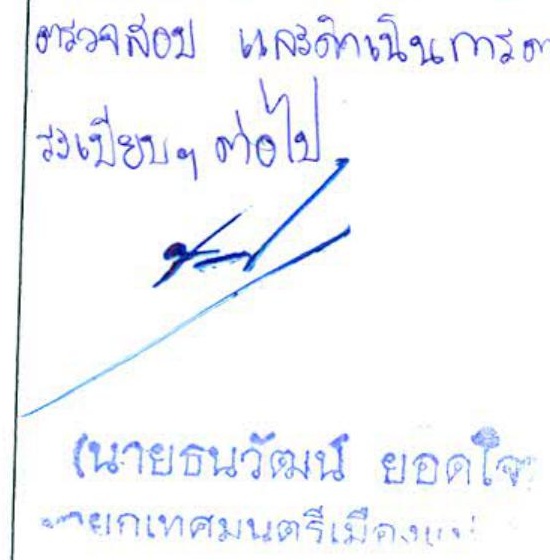 ตรวจสอบ และดำเนินการต
ระเบียบฯ ต่อไป
(นายธนวัฒน์ ยอดใจ
นายกเทศมนตรีเมือง